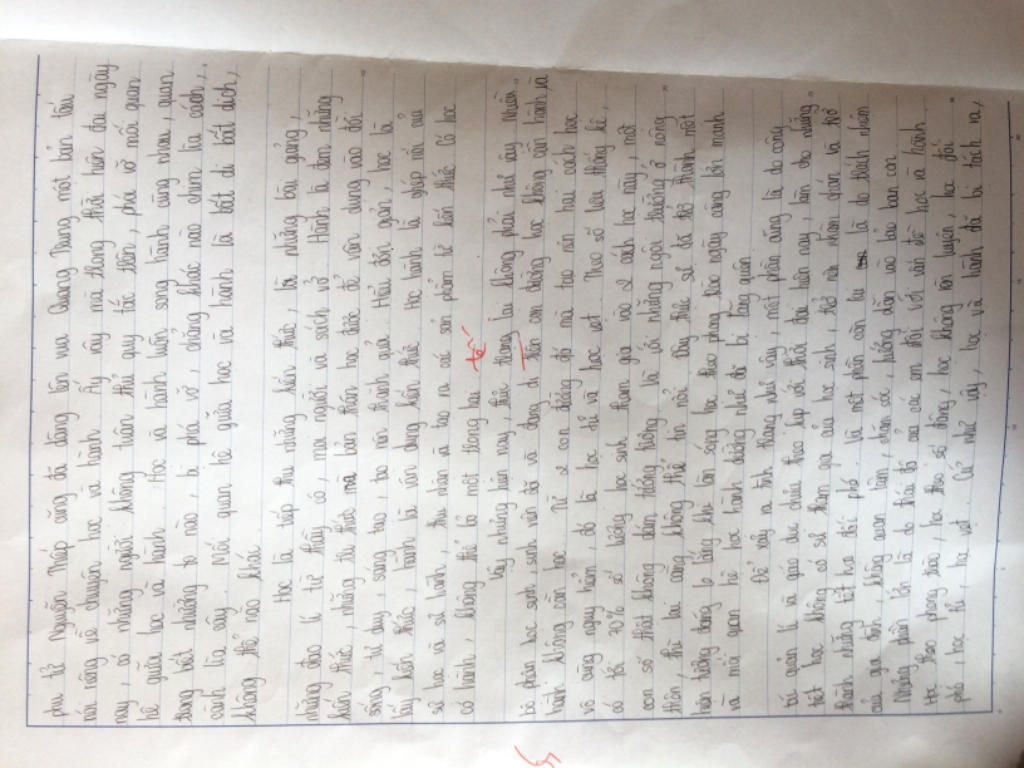 phu tử Nguyễn Thiếp cũng đã dâng lên vua Quang Trung một bản tấu
nói riêng về chuyện học và hành. Ấy vậy mà trong thời hiện đại ngày
nay, có những người không tuân thủ quy tắc trên, phá vỡ mối quan
hệ giữa học và hành. Học và hành luôn song hành cùng nhau, quan
trọng biết nhường nào, bị phá vỡ, chẳng khác nào chim lìa cành,
cành lìa cây. Mối quan hệ giữa học và hành là bất di bất dịch,
không thể nào khác.
Học là tiếp thu những kiến thức, là những bài giảng,
những đạo lí từ thầy cô, mọi người và sách vở. Hành là đem những
kiến thức, những tri thức mà bản thân học được để vận dụng vào đời
sống, tư duy, sáng tạo, tạo nên thành quả. Hiểu đơn giản, học là
lấy kiến thức, hành là vận dụng kiến thức. Học hành là ghép nối của
sự học và sự hành, thu nhận và tạo ra các sản phẩm từ kiến thức. Có học
có hành, không thể bỏ một trong hai.
tế
Vậy nhưng hiện nay, thực trạng lại không phải như vậy. Nhiều
bộ phận học sinh, sinh viên đã và đang đi trên con đường học không cần hành và
hành không cần học. Từ 2 con đường đó mà tạo nên hai cách học
vô cùng nguy hiểm, đó là học tủ và học vẹt. Theo số liệu thống kê,
có tới 30% số lượng học sinh tham gia vào 2 cách học này, một
con số thật khủng khiếp tưởng không là với những ngôi trường ở nông
thôn, thì lại càng không thể tin nổi. Đây thực sự đã trở thành một
hiện tượng đáng lo lắng khi làn sóng học theo phong trào ngày càng lớn mạnh
và mối quan hệ học hành dường như đã bị lãng quên.
Để xảy ra tình trạng như vậy, một phần cũng là do công
tác quản lí và giáo dục chưa theo kịp với thời đại hiện nay, làm cho những
tiết học không có sự tham gia của học sinh, trở nên nhàm chán và trở
thành những tiết học đối phó. Và một phần còn lại là do trách nhiệm
của gia đình, không quan tâm, chăm sóc, hướng dẫn và bảo ban con.
Nhưng phần lớn là do thái độ của các em đối với vấn đề học và hành.
Học theo phong trào, học theo số đông, học không rèn luyện, học đối
phó, học tủ, học vẹt. Cứ như vậy, học và hành đã bị tách ra,